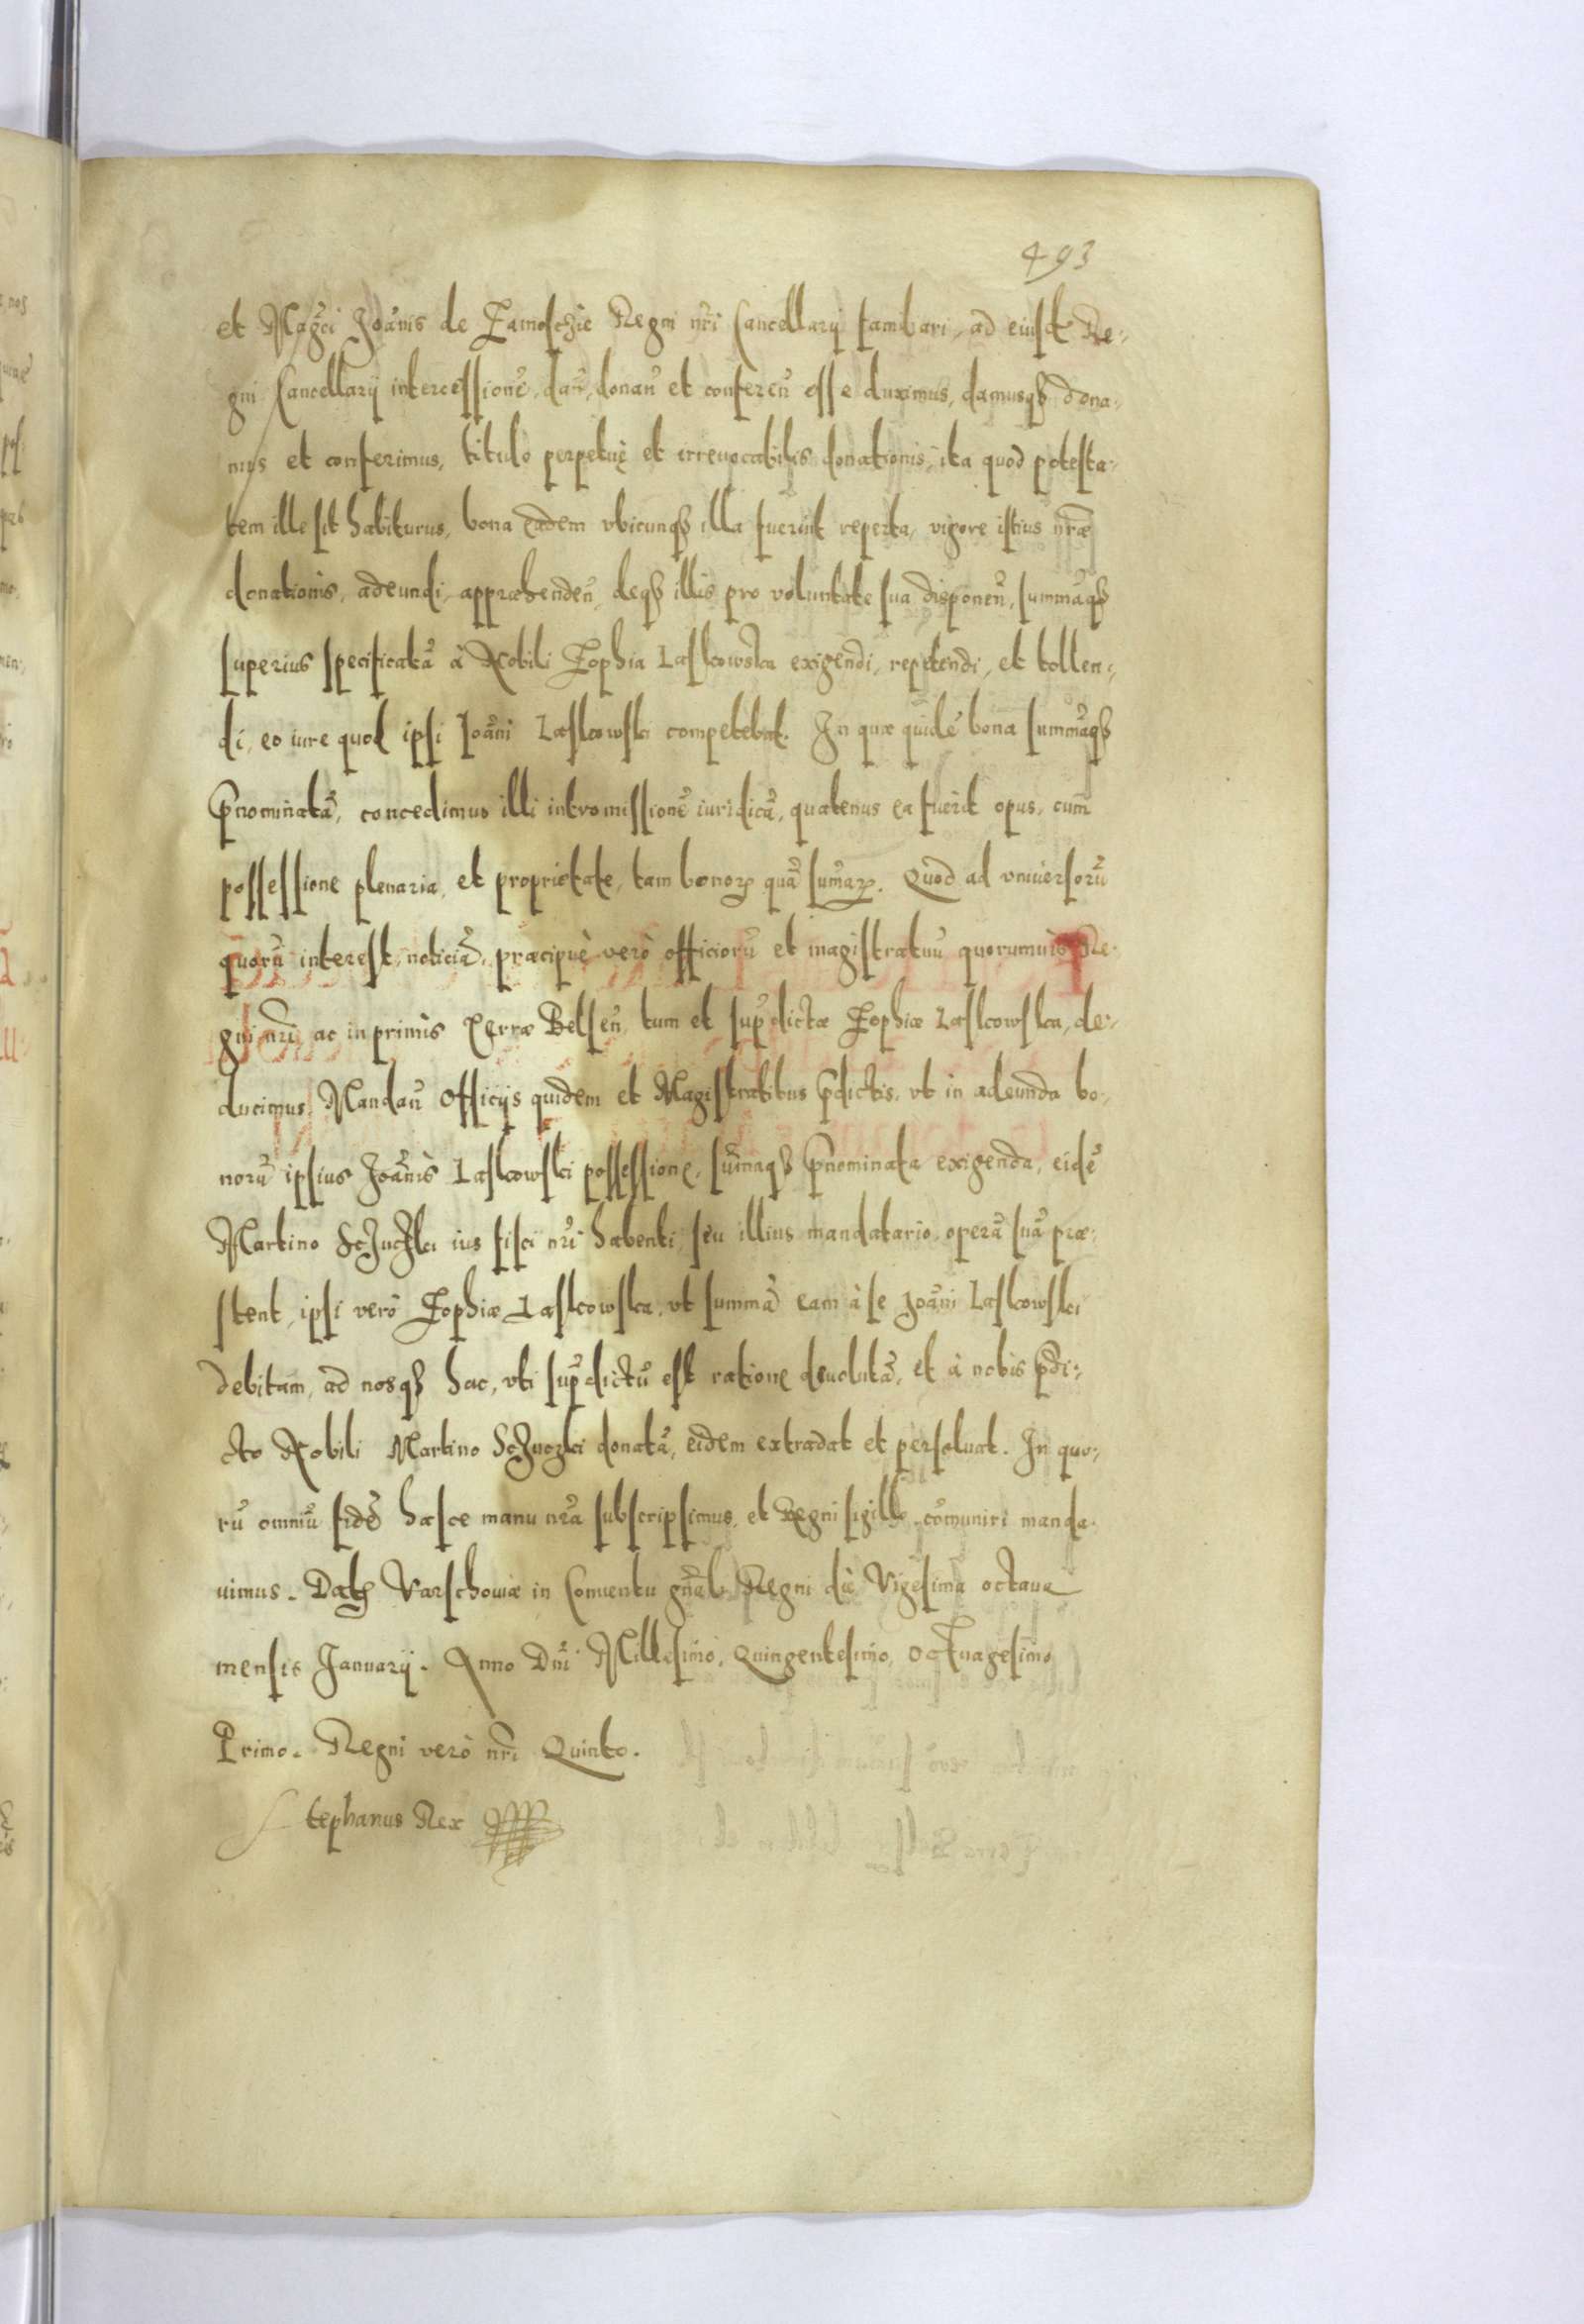 493
et Mag̃ci Joãnis de Zamoschie Regni nr̃i Cancellarij familiari, ad eiusd̃ Re-
gni Cancellarij intercessionẽ, dañ, donañ et confereñ esse duximus, damusq₃ dona-
mus et conferimus, titulo perpetuę et irreuocabilis donationis, ita quod potesta-
tem ille sit habiturus, bona eadem vbicunq₃ illa fuerint reperta, vigore istius nr̃æ
donationis, adeundi, appræhendeñ, deq₃ illis pro voluntate sua disponeñ, summãq₃
superius specificatã à Nobili Zophia Laskowska exigendi, repetendi, et tollen-
di, eo iure quod ipsi Joãni Laskowski competebat. In quæ quidẽ bona summãq₃
p̃nominatã, concedimus illi intromissionẽ iuridicã, quatenus ea fuerit opus, cum
possessione plenaria, et proprietate, tam bonoꝝ quã sum̃aꝝ. Quod ad vniuersorũ
quorũ interest, noticiã, præcipuè verò officiorũ et magistratuũ quorumuis Re-
gni nr̃i ac inprimis Terræ Belseñ, tum et sup̃dictæ Zophiæ Laskowska, de-
ducimus, Mandañ Officijs quidem et Magistratibus p̃dictis, vt in adeunda bo-
norũ ipsius Joãnis Laskowski possessione, sum̃aq₃ p̃nominata exigenda, eidẽ
Martino ius fisci nr̃i habenti, seu illius mandatario, operã suã præ-
stent, ipsi verò Zophiæ Laskowska, vt summã eam à se Joãni Laskowski
debitam, ad nosq₃ hac, vti sup̃dictũ est ratione deuolutã, et à nobis p̃di-
cto Nobili Martino donatã, eidem extradat et persoluat. In quo-
rũ omniũ fidẽ hasce manu nr̃a subscripsimus, et Regni sigillo com̃uniri manda-
uimus. Datꝫ Varschouiæ in Conuentu gñali Regni die Vigesima octaua
mensis Januarij. Anno Dñi Millesimo, Quingentesimo, Octuagesimo
Primo. Regni verò nr̃i Quinto.
Stephanus Rex